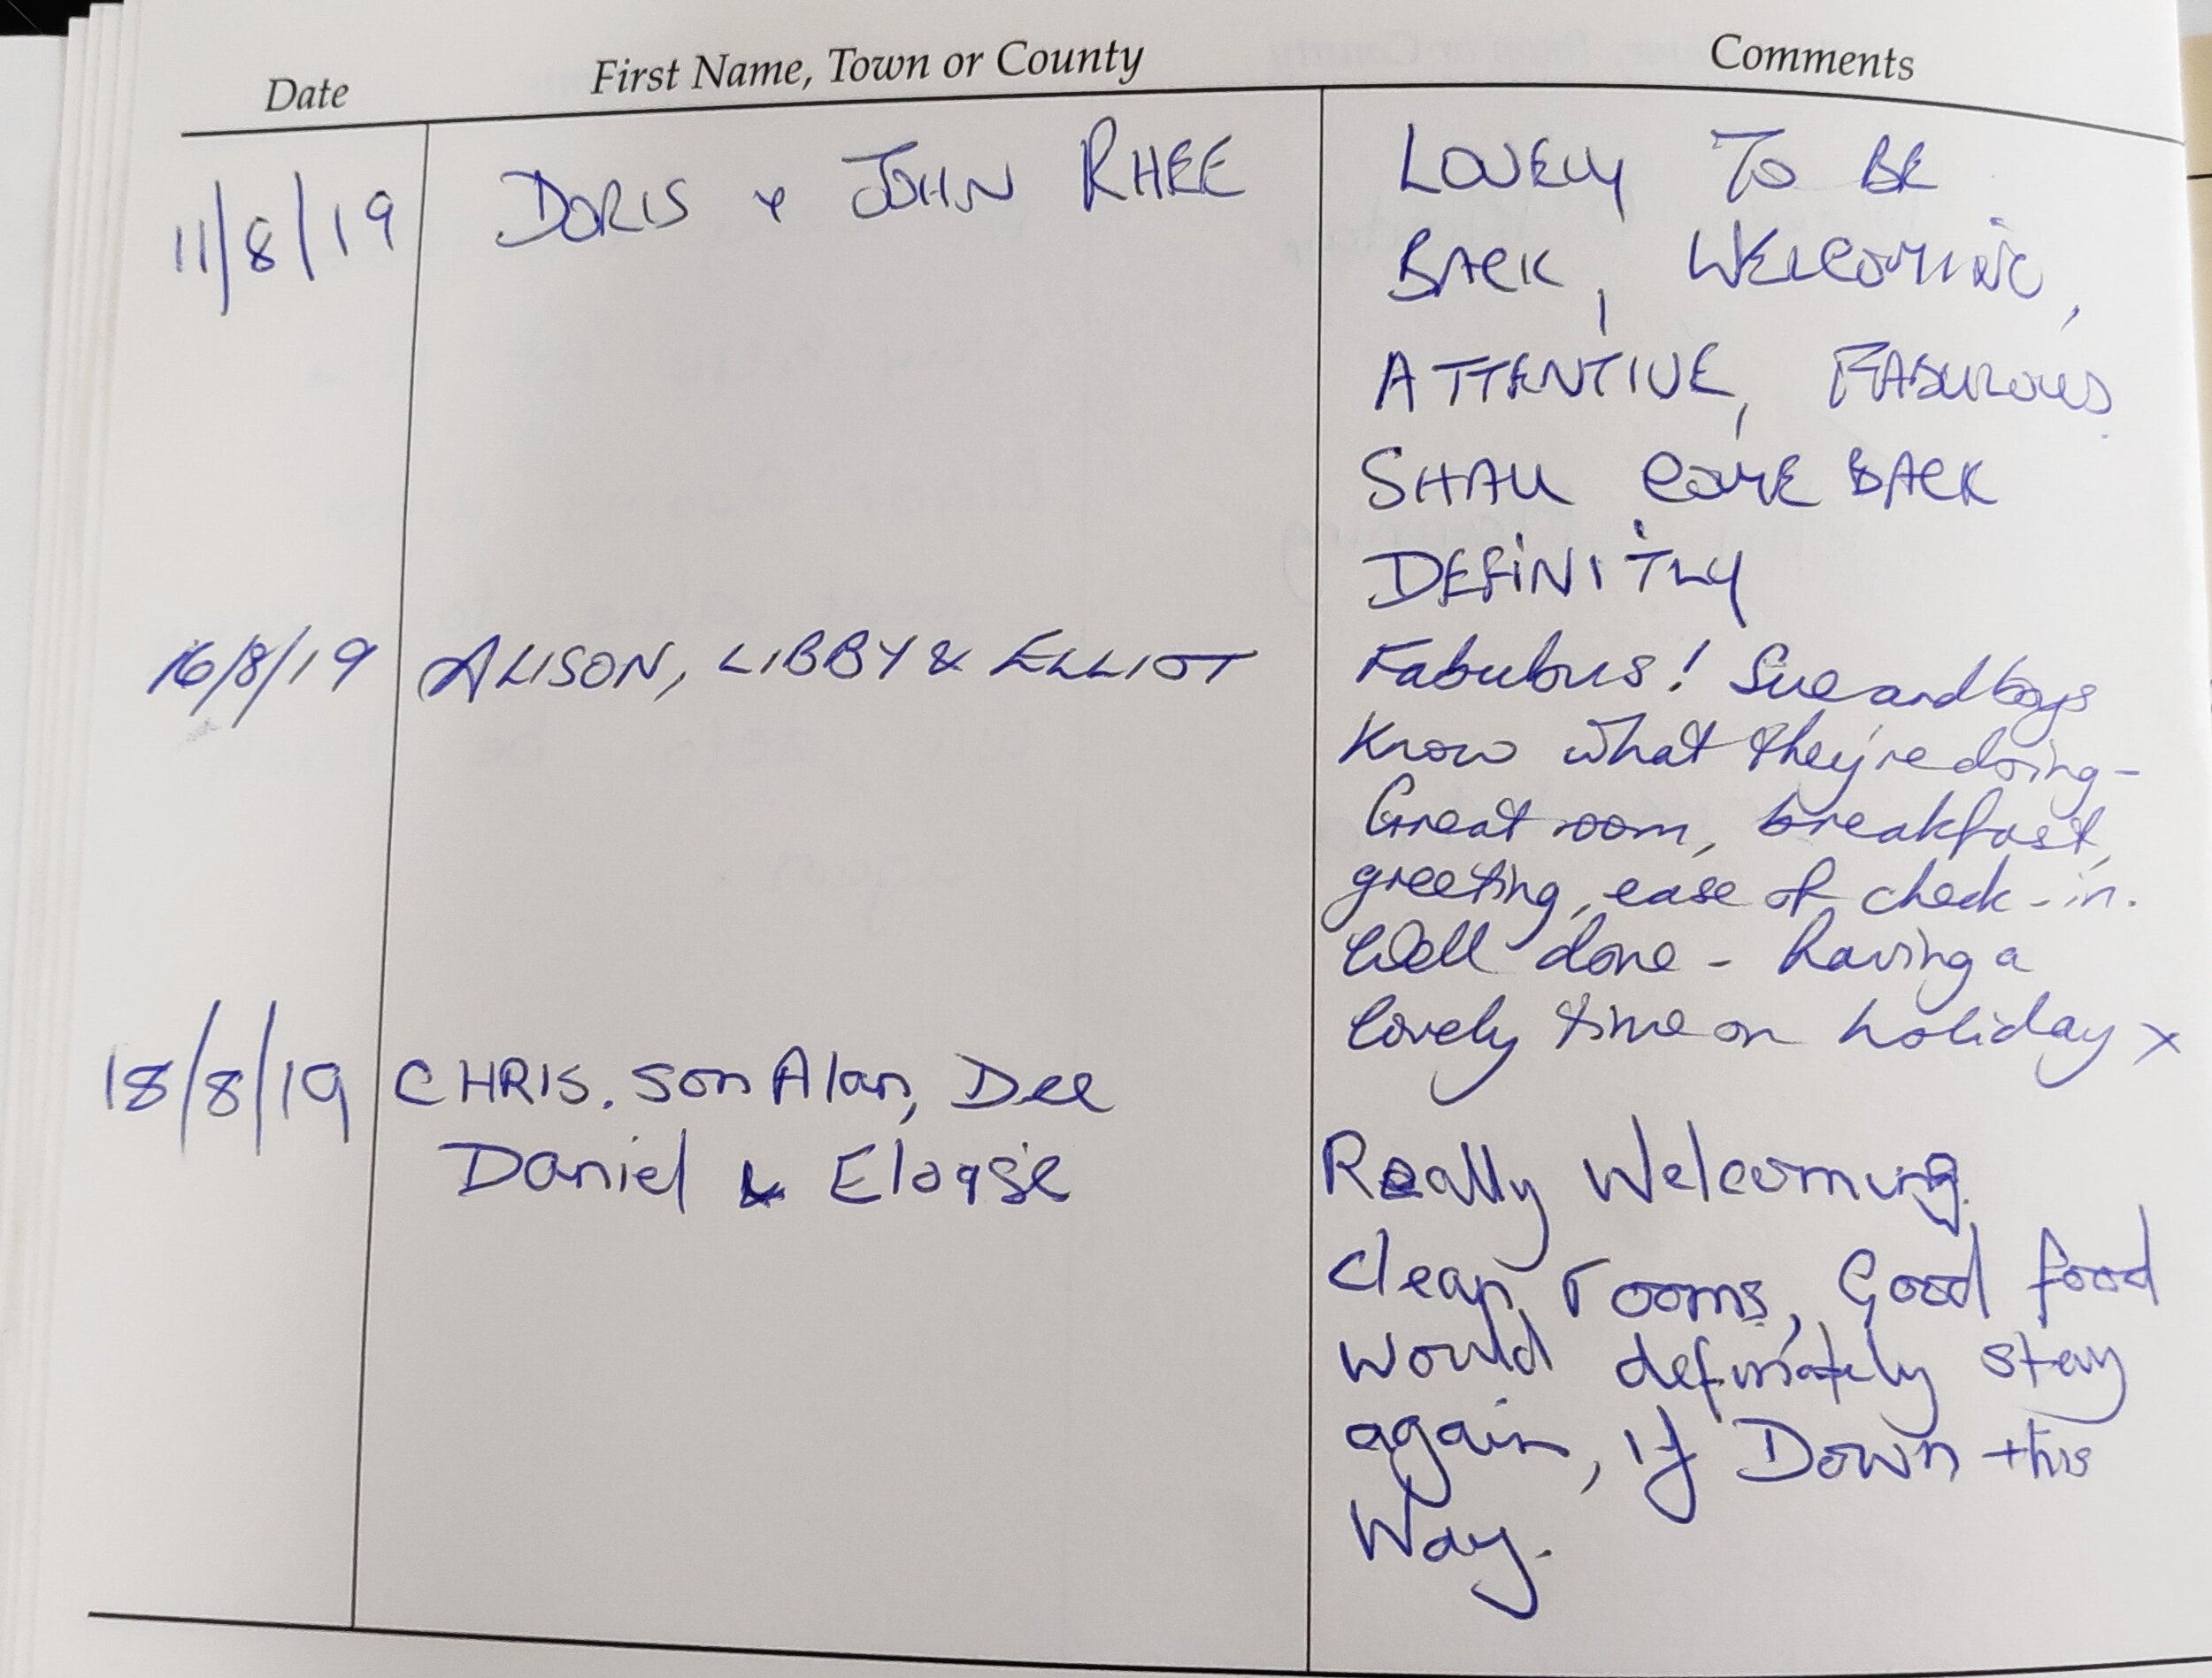 Date First Name, Town or County Comments
11/8/19 DORIS & JOHN RHEE LOVELY TO BE
BACK, WELCOMING,
ATTENTIVE, FABULOUS.
SHALL COME BACK
DEFINITLY
16/8/19 ALISON, LIBBY & ELLIOT Fabulous! Sue and boys
know what they're doing -
Great room, breakfast,
greeting, ease of check-in.
Well done - having a
lovely time on holiday x
18/8/19 CHRIS. son Alan, Dee
Daniel & Eloise Really Welcoming.
Clean rooms, Good food
would definately stay
again, if Down this
Way.